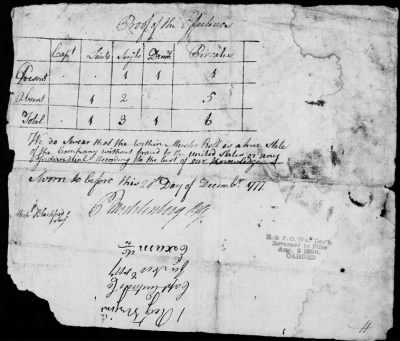 Proof of the Effectives
Capt Lieuts Serjts Drum Privates
Present . . 1 1 1
Absent . 1 2 . 5
Total . 1 3 1 6
We do Swear that the within Muster Roll is a true State
of the Company without fraud to the United States or any
Individual according to the best of our Knowledge
Sworn to before this 20th Day of Decembr 1777
P Muhlenberg BG
R & P O War Dep't.
Returned to Files
Aug. 2 1895.
CARDED
1 Reg Virginia